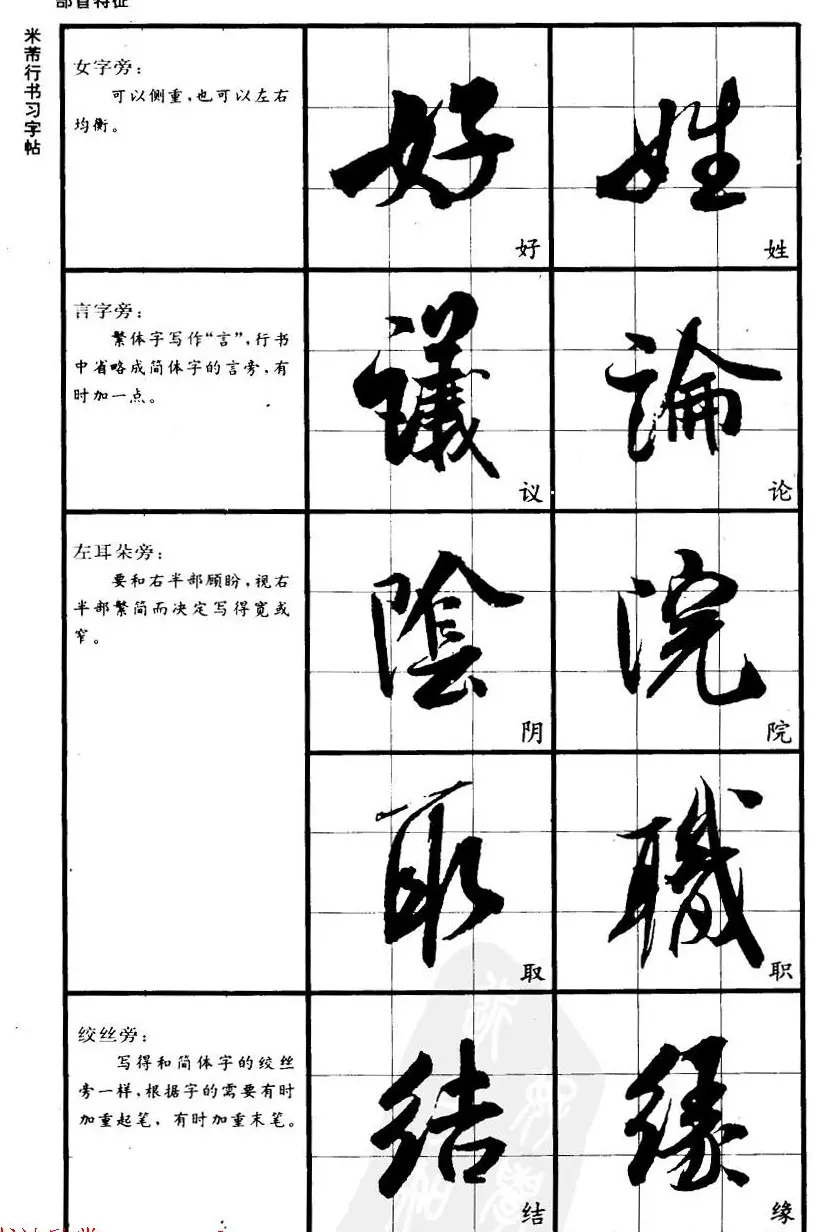 部首特征
米芾行书习字帖
女字旁：
可以侧重，也可以左右
均衡。
好
好
姓
姓
言字旁：
繁体字写作“言”，行书
中省略成简体字的言旁，有
时加一点。
議
议
論
论
左耳朵旁：
要和右半部顾盼，视右
半部繁简而决定写得宽或
窄。
陰
阴
院
院
取
取
職
职
绞丝旁：
写得和简体字的绞丝
旁一样，根据字的需要有时
加重起笔，有时加重末笔。
結
结
緣
缘